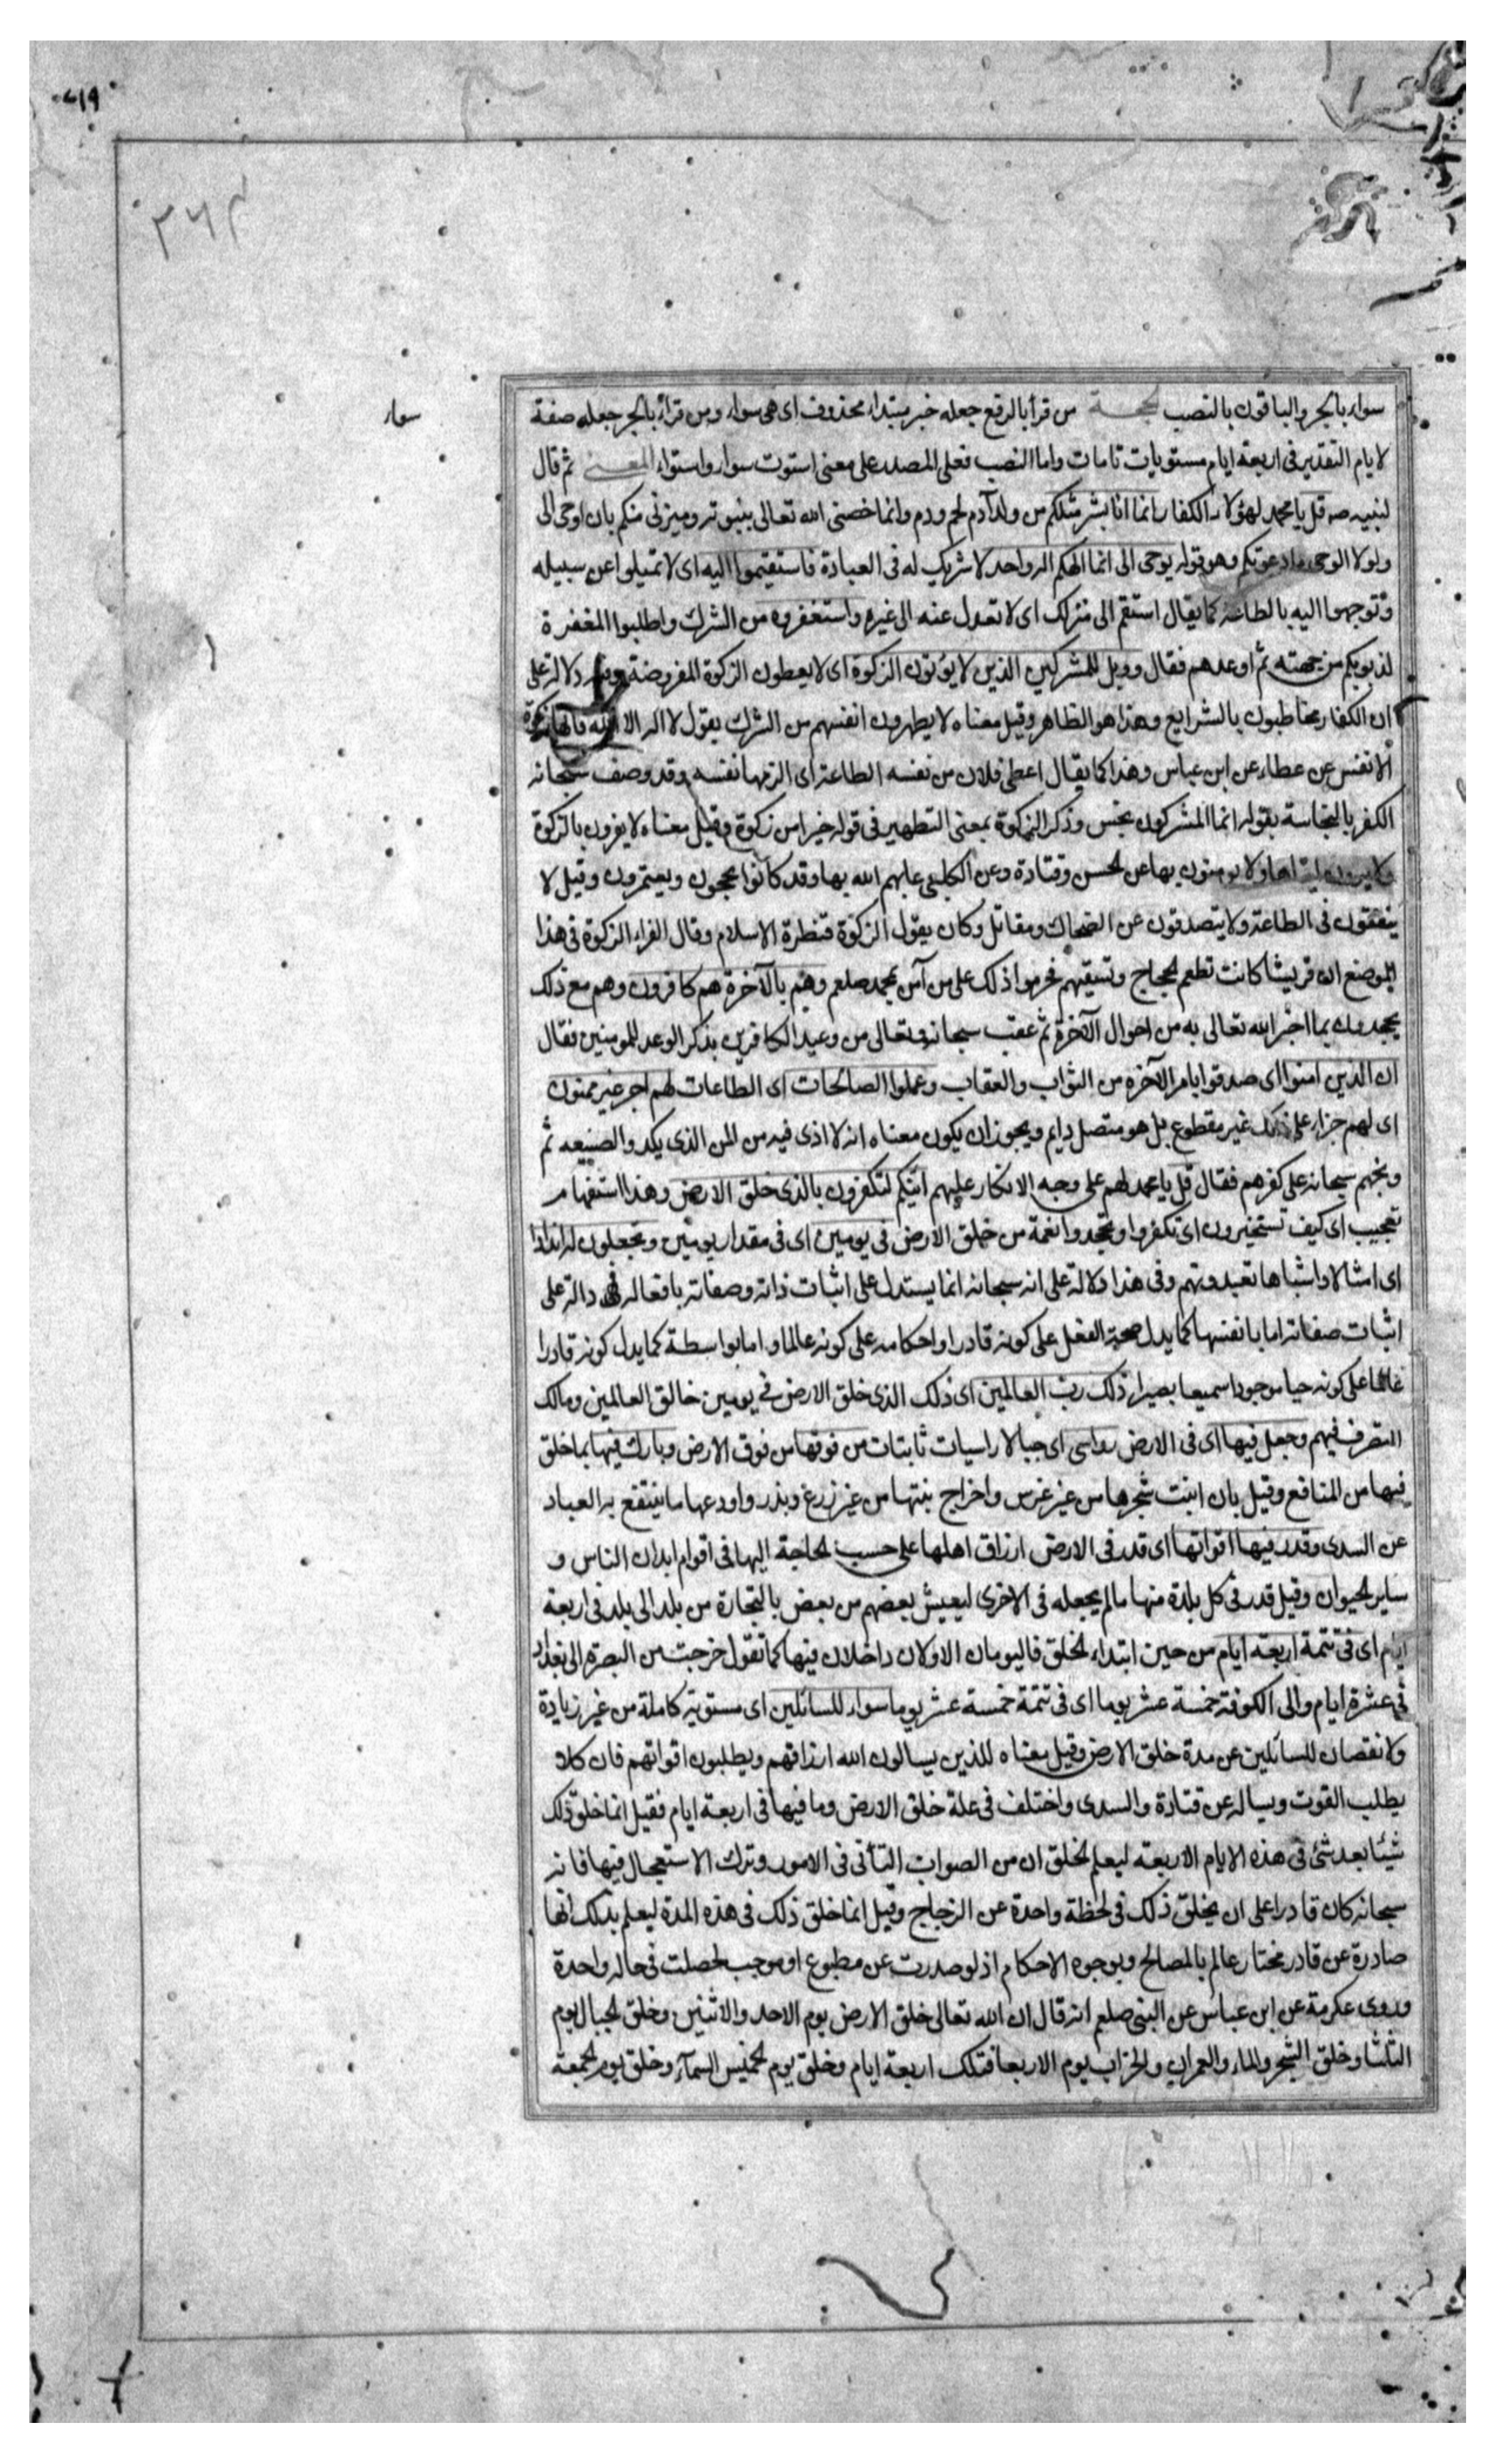 ٢١٩
٣٦٢
سواء
سواء بالجر والباقون بالنصب الحجة من قرأ بالرفع جعله خبر مبتداء محذوف اى هى سواء ومن قرأ بالجر جعله صفة
لايام التقدير فى اربعة ايام مستويات تامات واما النصب فعلى المصدر على معنى استوت سواء واستواء المعنى ثم قال
لنبيه صه قل يا محمد لهؤلاء الكفار انما انا بشر مثلكم من ولد آدم لحم ودم وانما خصنى الله تعالى بنبوته وميزنى منكم بان اوحى الى
ولولا الوحى ما دعوتكم وهو قوله يوحى الى انما الهكم اله واحد لا شريك له فى العبادة فاستقيموا اليه اى لا تميلوا عن سبيله
وتوجهوا اليه بالطاعة كما يقال استقم الى منزلك اى لا تعدل عنه الى غيره واستغفروه من الشرك واطلبوا المغفرة
لذنوبكم من جهته ثم اوعدهم فقال وويل للمشركين الذين لا يؤتون الزكوة اى لا يعطون الزكوة المفروضة وفيه دلالة على
ان الكفار مخاطبون بالشرايع وهذا هو الظاهر وقيل معناه لا يطهرون انفسهم من الشرك بقول لا اله الا الله فانها زكوة
الانفس عن عطاء عن ابن عباس وهذا كما يقال اعطى فلان من نفسه الطاعة اى الزمها نفسه وقد وصف سبحانه
الكفر بالنجاسة بقوله انما المشركون نجس وذكر الزكوة بمعنى التطهير فى قوله خيرا من زكوة وقيل معناه لا يقرون بالزكوة
ولا يرون ايتاها ولا يومنون بها عن الحسن وقتادة وعن الكلبى عابهم الله بها وقد كانوا يحجون ويعتمرون وقيل لا
ينفقون فى الطاعة ولا يتصدقون عن الضحاك ومقاتل وكان يقول الزكوة قنطرة الاسلام وقال الفراء الزكوة فى هذا
الموضع ان قريشا كانت تطعم الحجاج وتسقيهم فحرموا ذلك على من آمن بمحمد صلعم وهم بالآخرة هم كافرون وهم مع ذلك
يجحدون بما اخبر الله تعالى به من احوال الآخرة ثم عقب سبحانه وتعالى من وعيد الكافرين بذكر الوعد للمومنين فقال
ان الذين امنوا اى صدقوا بامر الآخره من الثواب والعقاب وعملوا الصالحات اى الطاعات لهم اجر غير ممنون
اى لهم جزاء على ذلك غير مقطوع بل هو متصل دايم ويجوز ان يكون معناه انه لا اذى فيه من المن الذى يكدر الصنيعه ثم
وبخهم سبحانه على كفرهم فقال قل يا محمد لهم على وجه الانكار عليهم ائنكم لتكفرون بالذى خلق الارض وهذا استفهام
تعجيب اى كيف تستجيزون اى تكفروا وتجحدوا نعمة من خلق الارض فى يومين اى فى مقدار يومين وتجعلون له اندادا
اى امثالا واشباها تعبدونهم وفى هذا دلالة على انه سبحانه انما يستدل على اثبات ذاته وصفاته بافعاله فهى دالة على
اثبات صفاته اما بانفسها كما يدل صحة الفعل على كونه قادرا واحكامه على كونه عالما واما بواسطة كما يدل كونه قادرا
عالما على كونه حيا موجودا سميعا بصيرا ذلك رب العالمين اى ذلك الذى خلق الارض فى يومين خالق العالمين ومالك
التصرف فيهم وجعل فيها اى فى الارض رواسى اى جبالا راسيات ثابتات من فوقها من فوق الارض وبارك فيها بما خلق
فيها من المنافع وقيل بان انبت شجرها من غير غرس واخراج نبتها من غير زرع وبذر واودعها ما ينتفع به العباد
عن السدى وقدر فيها اقواتها اى قدر فى الارض ارزاق اهلها على حسب الحاجة اليها فى اقوام ابدان الناس و
ساير الحيوان وقيل قدر فى كل بلدة منها ما لم يجعله فى الاخرى ليعيش بعضهم من بعض بالتجارة من بلد الى بلد فى اربعة
ايام اى فى تتمة اربعة ايام من حين ابتداء الخلق فاليومان الاولان داخلان فيها كما تقول خرجت من البصرة الى بغداد
فى عشرة ايام والى الكوفة خمسة عشر يوما اى فى تتمة خمسة عشر يوما سواء للسائلين اى مستوية كاملة من غير زيادة
ولا نقصان للسائلين عن مدة خلق الارض وقيل معناه للذين يسالون الله ارزاقهم ويطلبون اقواتهم فان كلا
يطلب القوت ويساله عن قتادة والسدى واختلف فى علة خلق الارض وما فيها فى اربعة ايام فقيل انما خلق ذلك
شيئا بعد شئ فى هذه الايام الاربعة ليعلم الخلق ان من الصواب التأنى فى الامور وترك الاستعجال فيها فانه
سبحانه كان قادرا على ان يخلق ذلك فى لحظة واحدة عن الزجاج وقيل انما خلق ذلك فى هذه المدة ليعلم بذلك انها
صادرة عن قادر مختار عالم بالمصالح وبوجوه الاحكام اذ لو صدرت عن مطبوع او موجب لحصلت فى حاله واحدة
وروى عكرمة عن ابن عباس عن النبى صلعم انه قال ان الله تعالى خلق الارض يوم الاحد والاثنين وخلق الجبال يوم
الثلثا وخلق الشجر والماء والعمران والخراب يوم الاربعا فتلك اربعة ايام وخلق يوم الخميس السمآء وخلق يوم الجمعة